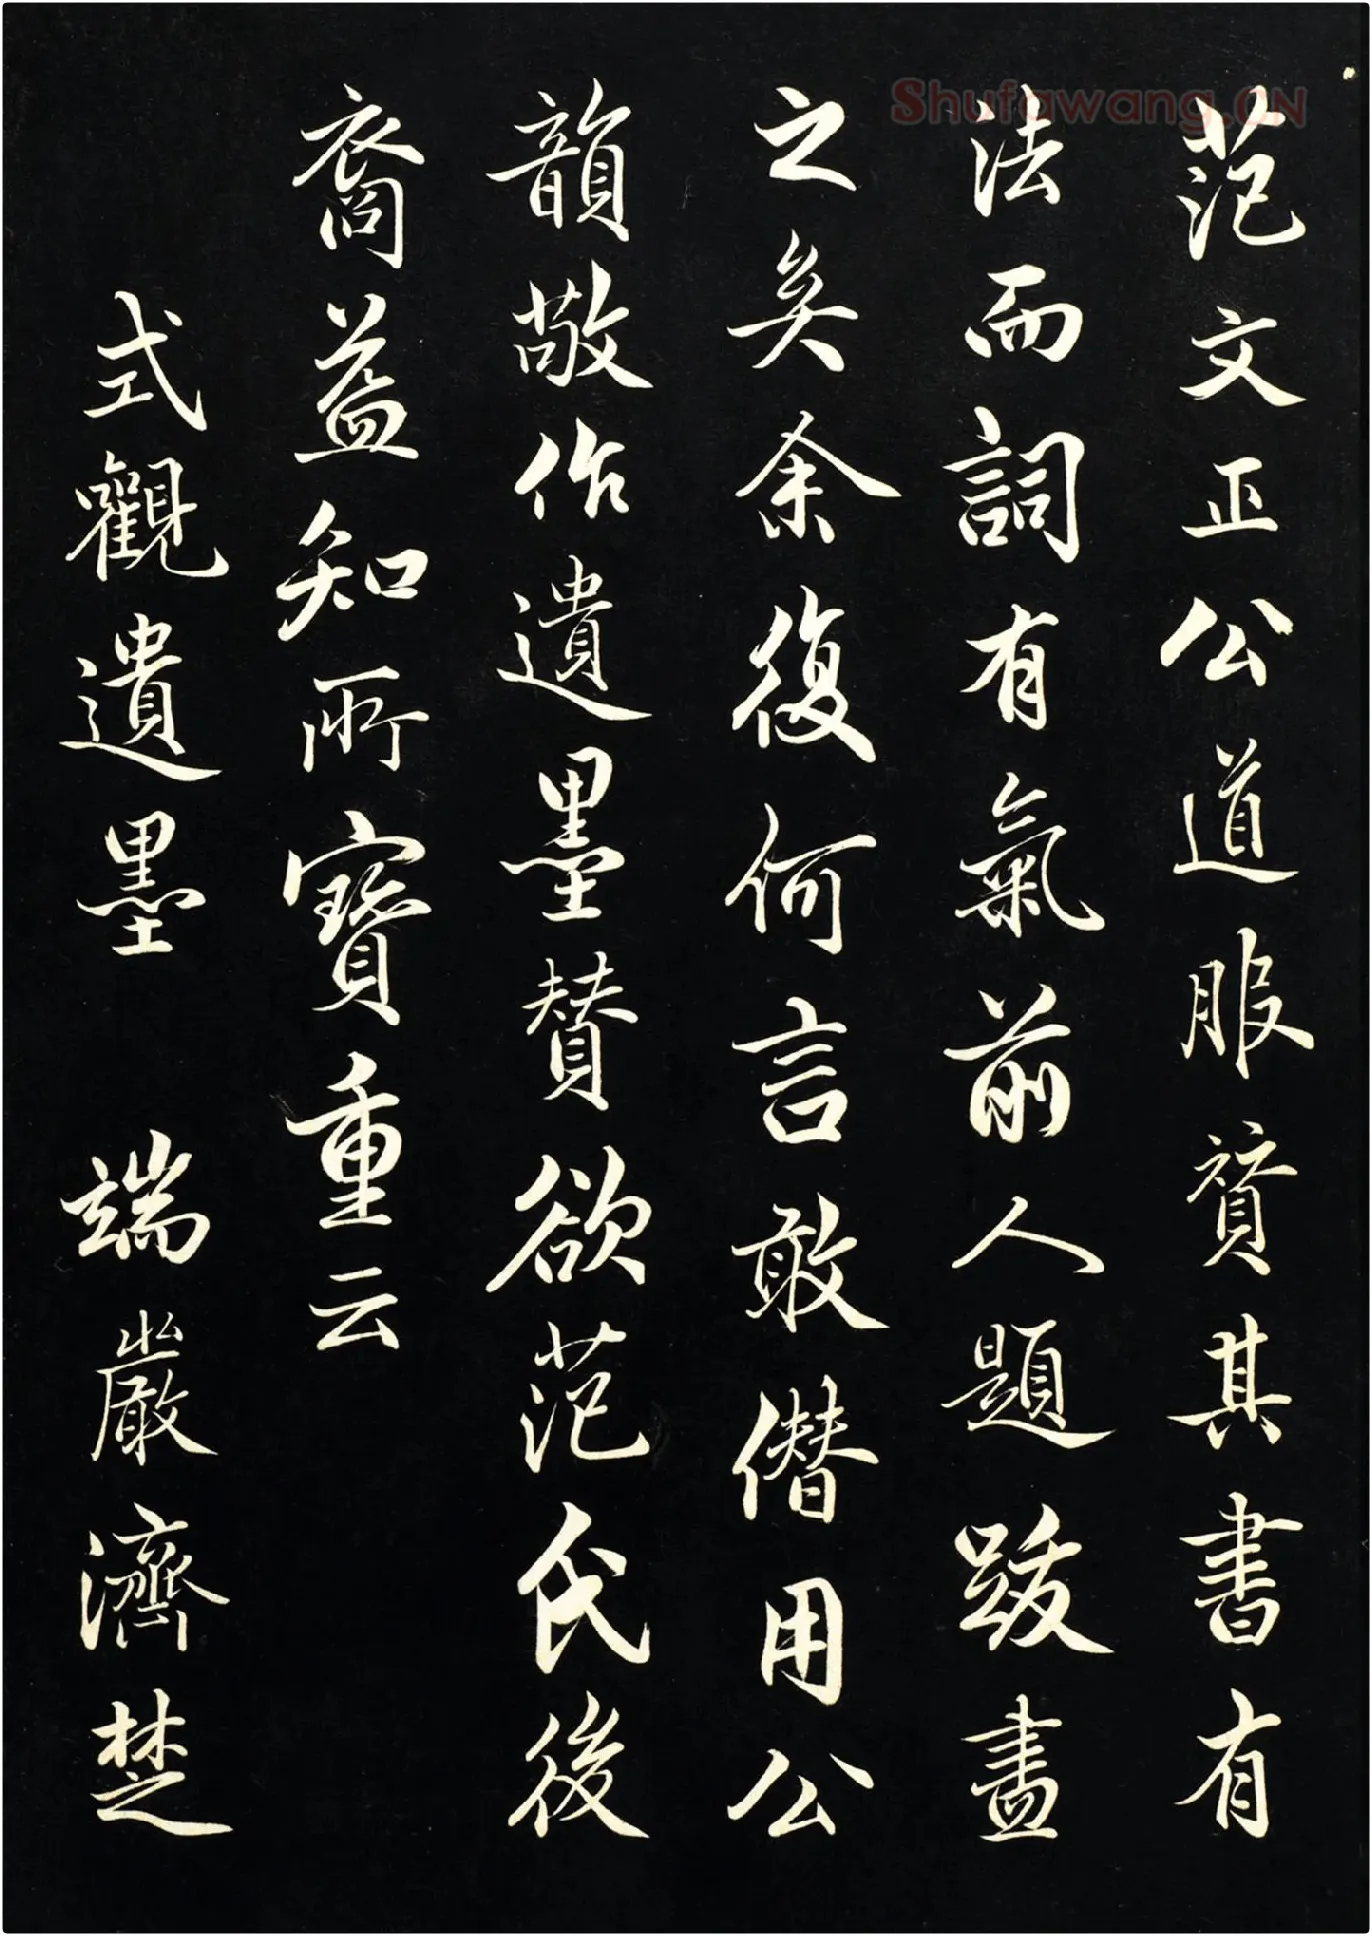 Shufawang.CN
范文正公道服賛其書有
法而詞有氣前人題跋盡
之矣余復何言敢僭用公
韻敬作遺墨賛欲范氏後
裔益知所寶重云
式觀遺墨　端嚴濟楚